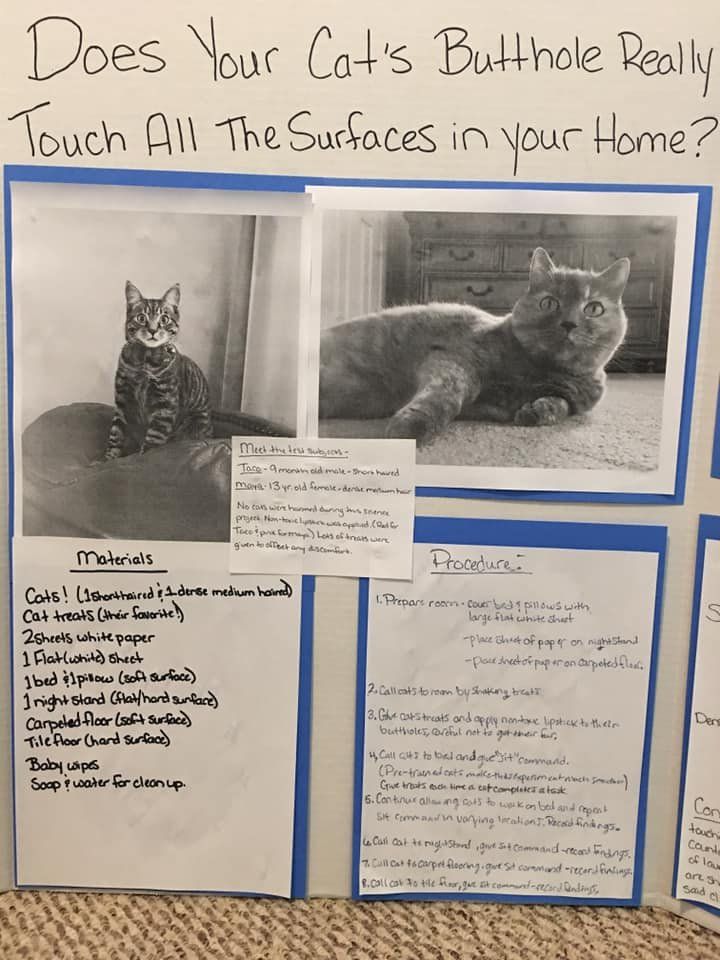 Does Your Cat's Butthole Really
Touch All The Surfaces in your Home?
Meet the test subjects -
Taco - 9 month old male - short haired
Maya - 13 yr. old female - dense medium hair
No cats were harmed during this science
project. Non-toxic lipstick was applied. (Red for
Taco & pink for Maya) Lots of treats were
given to offset any discomfort.
Materials
Cats! (1 shorthaired & 1 dense medium haired)
Cat treats (their favorite!)
2 sheets white paper
1 Flat (white) sheet
1 bed & 1 pillow (soft surface)
1 night stand (flat/hard surface)
Carpeted floor (soft surface)
Tile floor (hard surface)
Baby wipes
Soap & water for clean up.
Procedure:
1. Prepare room - cover bed & pillows with
large flat white sheet
- place sheet of paper on nightstand
- place sheet of paper on carpeted floor.
2. Call cats to room by shaking treats
3. Give cats treats and apply non-toxic lipstick to their
buttholes, careful not to get their fur.
4. Call cats to bed and give "sit" command.
(Pre-trained cats make this experiment much smoother)
Give treats each time a cat completes a task
5. Continue allowing cats to walk on bed and repeat
sit command in varying locations. Record findings.
6. Call cat to nightstand, give sit command - record findings.
7. Call cat to carpet flooring, give sit command - record findings.
8. Call cat to tile floor, give sit command - record findings.
S
Den
Con
touch
Count
of
are
said